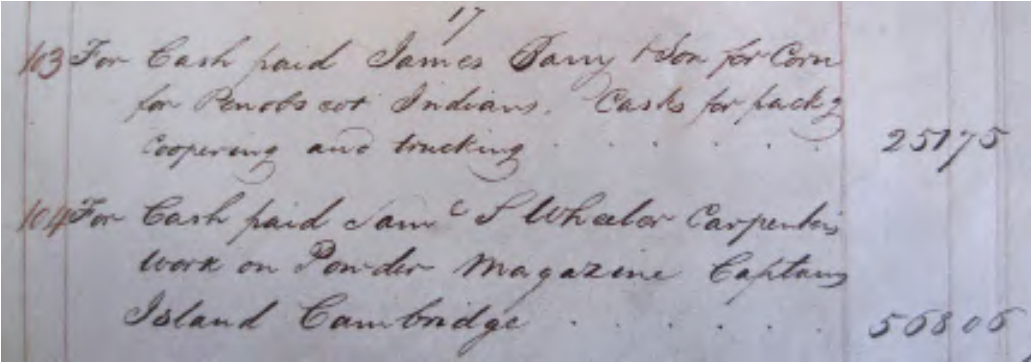 17
103 For Cash paid James Barry & Son for Corn
for Penobscot Indians. Casks for packg
Coopering and trucking . . . . . . 251 75
104 For Cash paid Saml S Wheeler Carpenters
work on Powder Magazine Captains
Island Cambridge . . . . . . 568 06